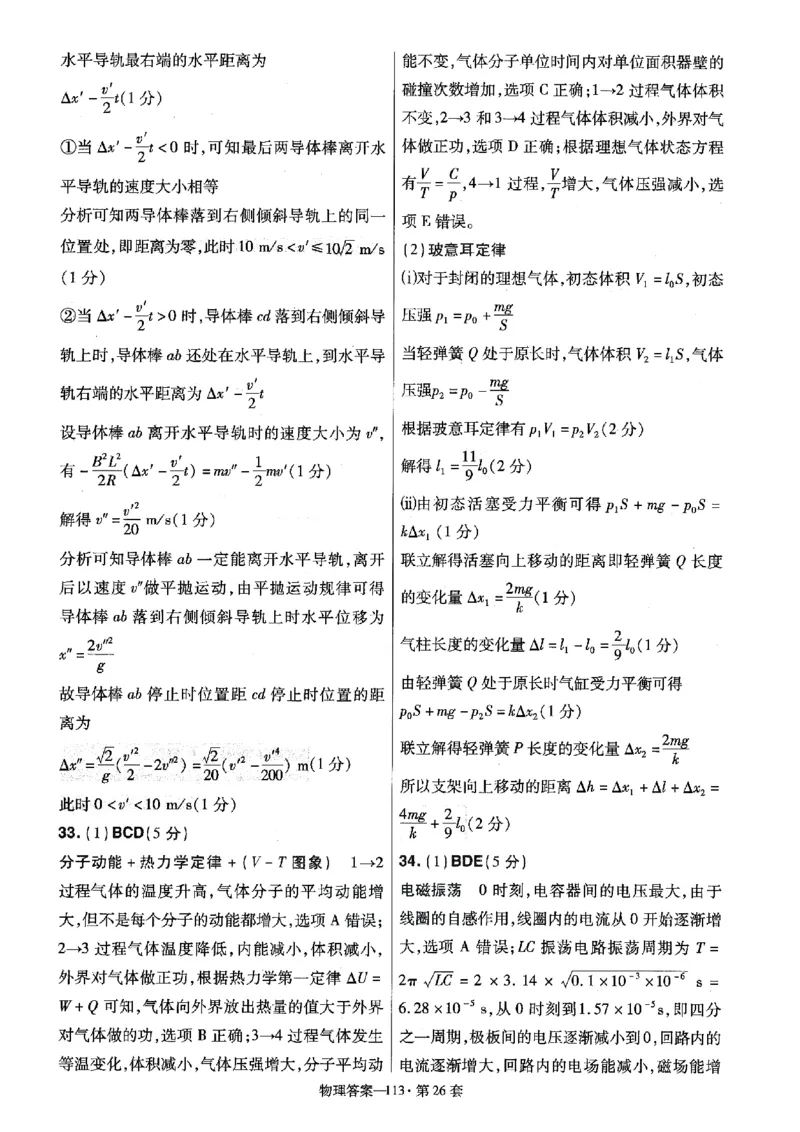 水平导轨最右端的水平距离为
Δx′ − v′/2 t(1分)
①当 Δx′ − v′/2 t < 0 时,可知最后两导体棒离开水
平导轨的速度大小相等
分析可知两导体棒落到右侧倾斜导轨上的同一
位置处,即距离为零,此时 10 m/s < v′ ≤ 10√2 m/s
(1分)
②当 Δx′ − v′/2 t > 0 时,导体棒 cd 落到右侧倾斜导
轨上时,导体棒 ab 还处在水平导轨上,到水平导
轨右端的水平距离为 Δx′ − v′/2 t
设导体棒 ab 离开水平导轨时的速度大小为 v″,
有 − B²L²/2R (Δx′ − v′/2 t) = mv″ − 1/2 mv′(1分)
解得 v″ = v′²/20 m/s(1分)
分析可知导体棒 ab 一定能离开水平导轨,离开
后以速度 v″做平抛运动,由平抛运动规律可得
导体棒 ab 落到右侧倾斜导轨上时水平位移为
x″ = 2v″²/g
故导体棒 ab 停止时位置距 cd 停止时位置的距
离为
Δx″ = √2/g (v′²/2 − 2v″²) = √2/20 (v′² − v′⁴/200) m(1分)
此时 0 < v′ < 10 m/s(1分)
33. (1) BCD(5分)
分子动能 + 热力学定律 + (V − T 图象) 1→2
过程气体的温度升高,气体分子的平均动能增
大,但不是每个分子的动能都增大,选项 A 错误;
2→3 过程气体温度降低,内能减小,体积减小,
外界对气体做正功,根据热力学第一定律 ΔU =
W + Q 可知,气体向外界放出热量的值大于外界
对气体做的功,选项 B 正确;3→4 过程气体发生
等温变化,体积减小,气体压强增大,分子平均动
能不变,气体分子单位时间内对单位面积器壁的
碰撞次数增加,选项 C 正确;1→2 过程气体体积
不变,2→3 和 3→4 过程气体体积减小,外界对气
体做正功,选项 D 正确;根据理想气体状态方程
有 V/T = C/p,4→1 过程,V/T 增大,气体压强减小,选
项 E 错误。
(2)玻意耳定律
(ⅰ)对于封闭的理想气体,初态体积 V₁ = l₀S,初态
压强 p₁ = p₀ + mg/S
当轻弹簧 Q 处于原长时,气体体积 V₂ = l₁S,气体
压强 p₂ = p₀ − mg/S
根据玻意耳定律有 p₁V₁ = p₂V₂(2分)
解得 l₁ = 11/9 l₀(2分)
(ⅱ)由初态活塞受力平衡可得 p₁S + mg − p₀S =
kΔx₁ (1分)
联立解得活塞向上移动的距离即轻弹簧 Q 长度
的变化量 Δx₁ = 2mg/k (1分)
气柱长度的变化量 Δl = l₁ − l₀ = 2/9 l₀(1分)
由轻弹簧 Q 处于原长时气缸受力平衡可得
p₀S + mg − p₂S = kΔx₂(1分)
联立解得轻弹簧 P 长度的变化量 Δx₂ = 2mg/k
所以支架向上移动的距离 Δh = Δx₁ + Δl + Δx₂ =
4mg/k + 2/9 l₀(2分)
34. (1) BDE(5分)
电磁振荡 0 时刻,电容器间的电压最大,由于
线圈的自感作用,线圈内的电流从 0 开始逐渐增
大,选项 A 错误;LC 振荡电路振荡周期为 T =
2π√LC = 2 × 3.14 × √0.1 × 10⁻³ × 10⁻⁶ s =
6.28 × 10⁻⁵ s,从 0 时刻到 1.57 × 10⁻⁵ s,即四分
之一周期,极板间的电压逐渐减小到 0,回路内的
电流逐渐增大,回路内的电场能减小,磁场能增
物理答案—113·第 26 套